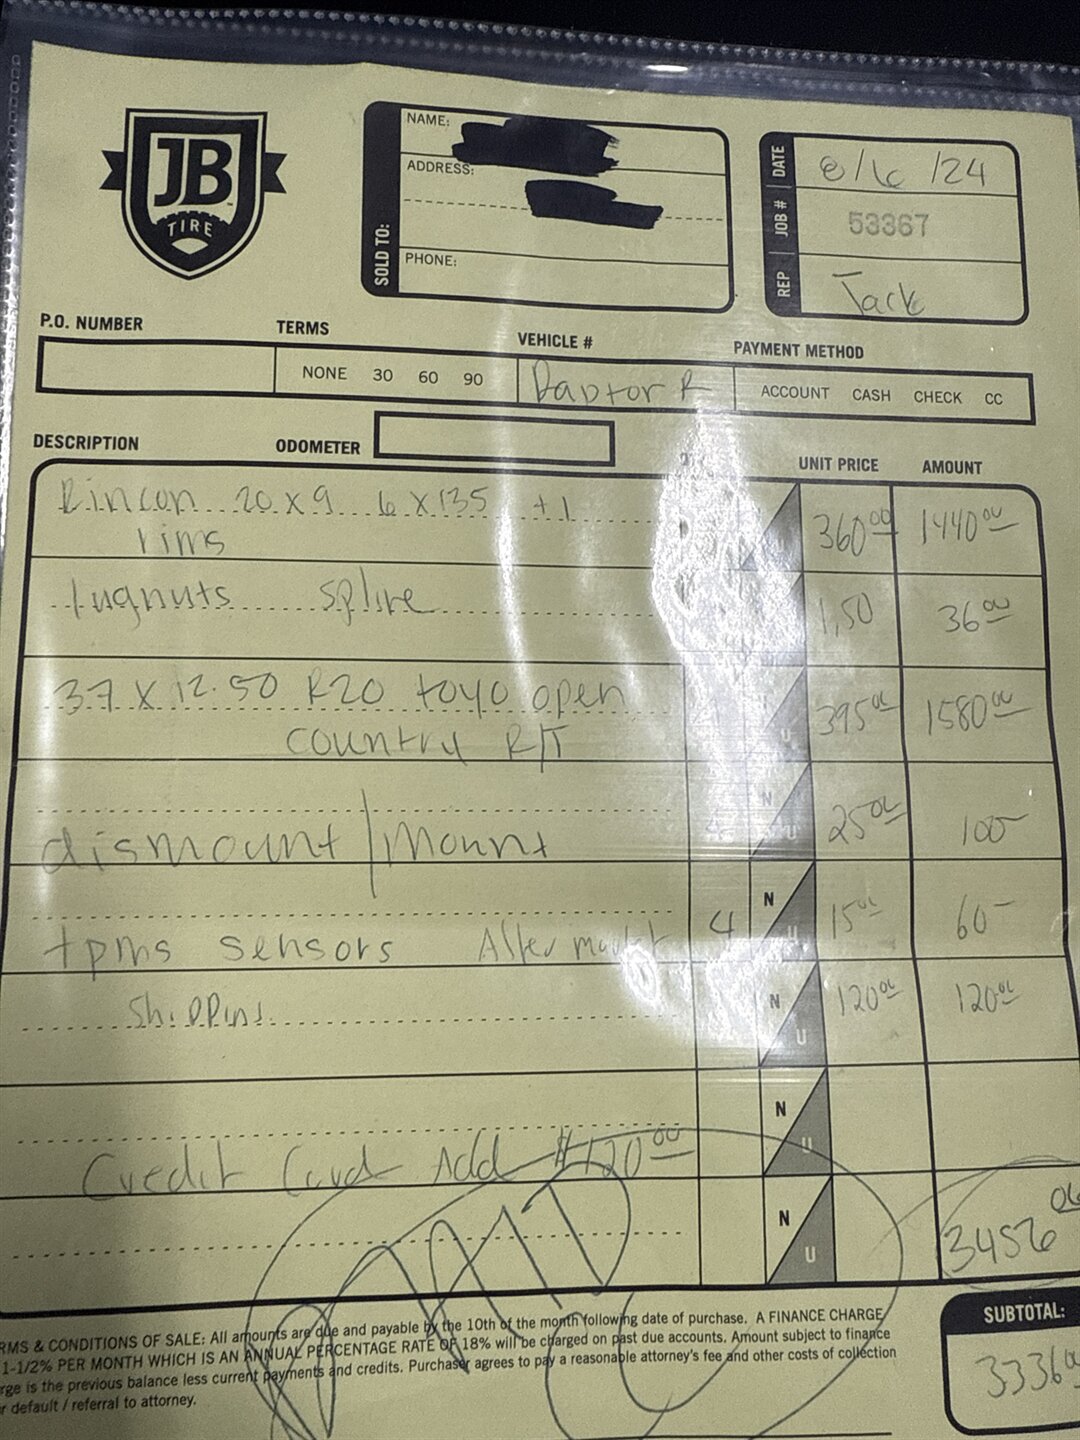 JB
TIRE
SOLD TO:
NAME:
ADDRESS:
PHONE:
DATE 8/6/24
JOB # 53367
REP Jack
P.O. NUMBER TERMS VEHICLE # PAYMENT METHOD
NONE 30 60 90 Raptor R ACCOUNT CASH CHECK CC
DESCRIPTION ODOMETER UNIT PRICE AMOUNT
Rincon 20 x 9 6 x 135 +1 360 00 1440 00
rims
lugnuts spline 1,50 36 00
37 x 12.50 R20 toyo open U 395 00 1580 00
country R/T
N
dismount / Mount 4 U 25 00 100 -
N
tpms sensors After market 4 U 15 00 60 -
Shipping N 120 00 120 00
U
N
U
Credit Card Add $120 00
N 3456 00
U
PAID
RMS & CONDITIONS OF SALE: All amounts are due and payable by the 10th of the month following date of purchase. A FINANCE CHARGE
1-1/2% PER MONTH WHICH IS AN ANNUAL PERCENTAGE RATE OF 18% will be charged on past due accounts. Amount subject to finance
rge is the previous balance less current payments and credits. Purchaser agrees to pay a reasonable attorney's fee and other costs of collection
r default / referral to attorney.
SUBTOTAL:
3336 00